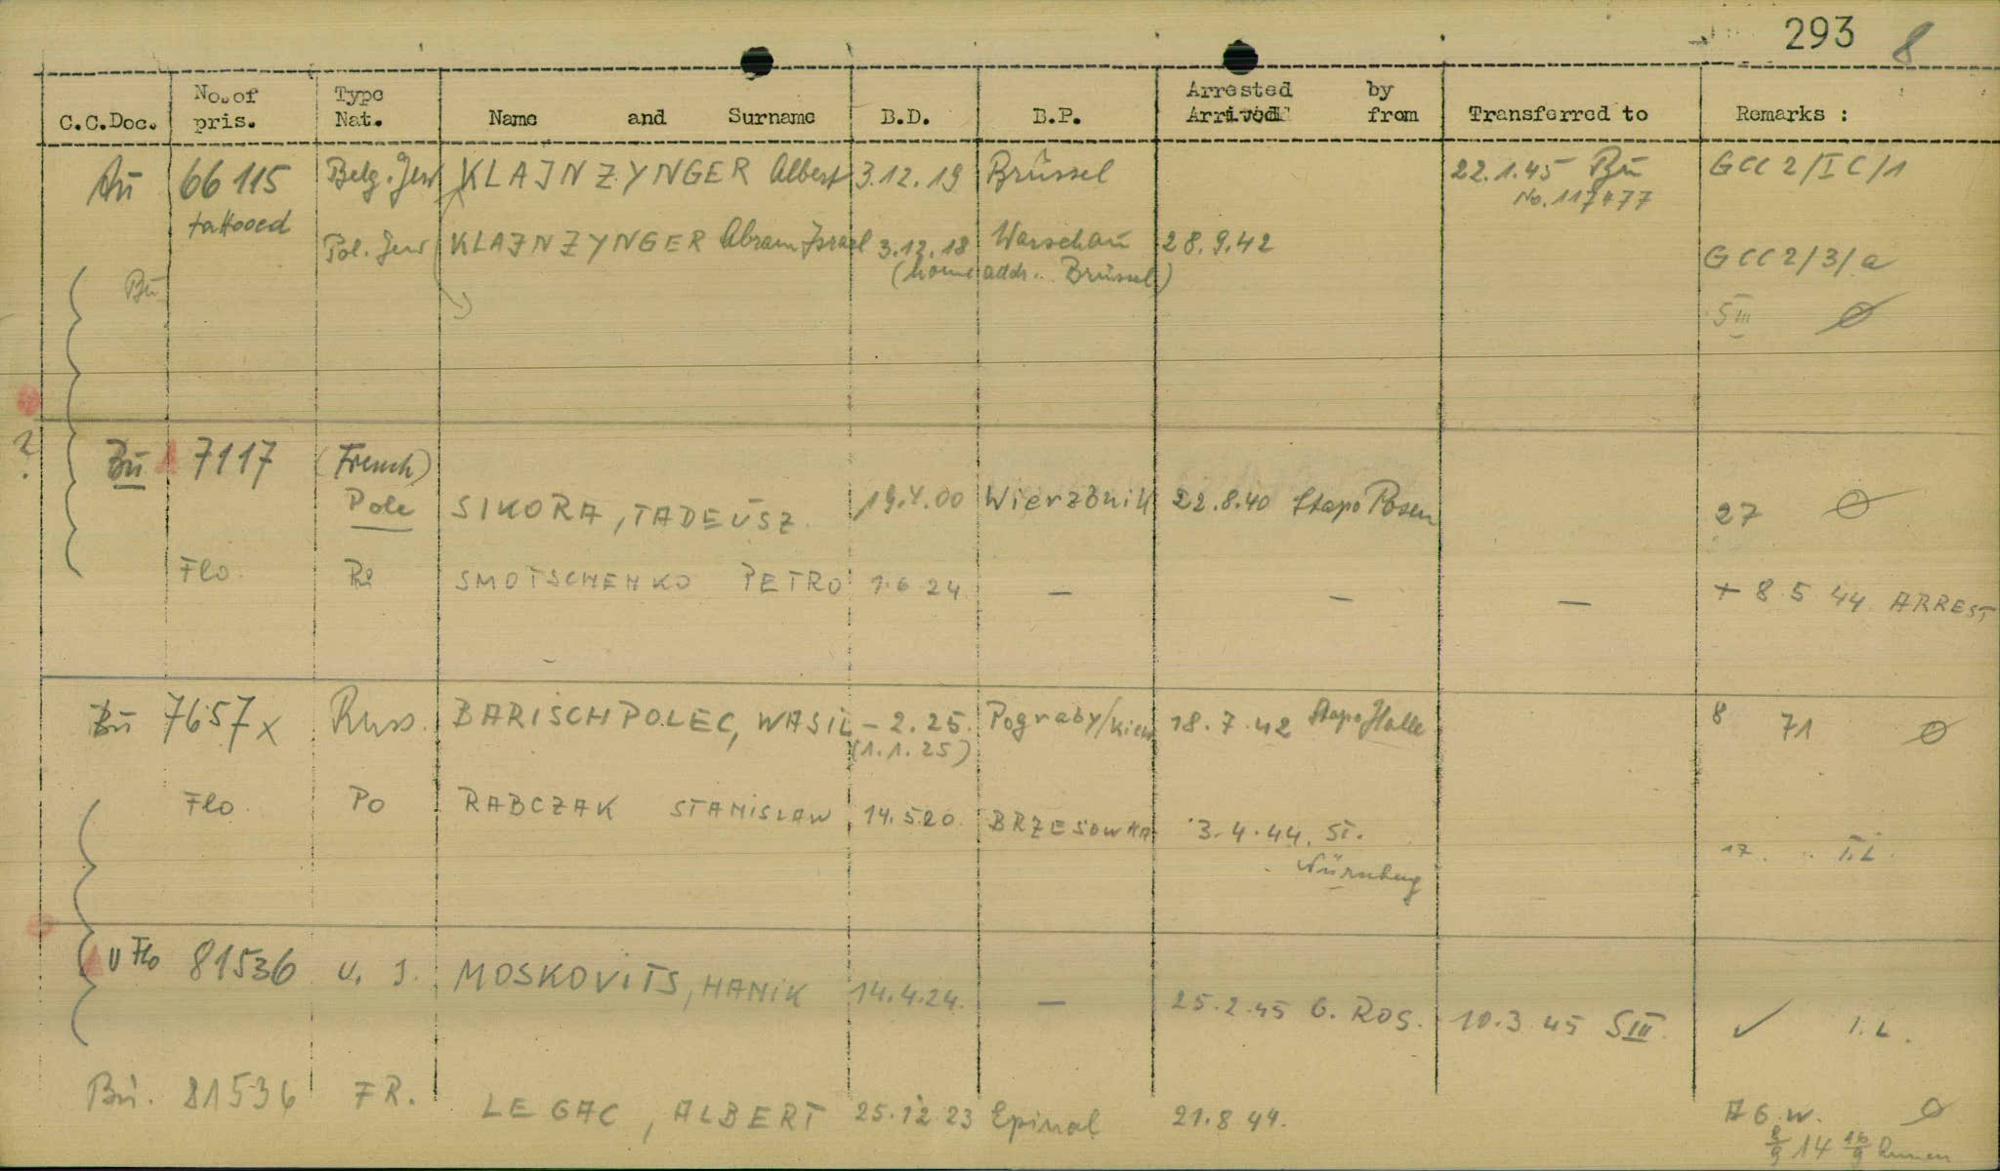 293 8
C.C.Doc. No.of pris. Type Nat. Name and Surname B.D. B.P. Arrested by Arrived from Transferred to Remarks :
Au 66 115 Belg. Jew KLAJNZYNGER Albert 3.12.19 Brüssel 22.1.45 Bu GCC 2/IC/1
tattooed No. 117477
Pol. Jew KLAJNZYNGER Abram Israel 3.12.18 Warschau 28.9.42 GCC 2/3/a
(home addr. Brüssel)
Bu SIII Ø
? Bu 7117 (French)
Pole SIKORA, TADEUSZ 19.4.00 Wierzbnik 22.8.40 Stapo Posen 27 Ø
Flo. SMOTSCHENKO PETRO 1.6 24 — — — + 8 5 44 ARREST
Bu 7657x Russ. BARISCHPOLEC, WASIL - 2.25. Pograby/Kiew 18.7.42 Stapo Halle 8 71 Ø
(1.1.25)
Flo. Po RABCZAK STANISLAW 14.5.20. BRZESOWKA 3.4.44. ST. 17. I.L
Nürnberg
Flo 81536 U. J. MOSKOVITS, HANIK 14.4.24. — 25.2.45 G. ROS. 10.3 45 SIII ✓ I.L.
Bu. 81536 FR. LE GAC, ALBERT 25.12 23 Epinal 21.8 44. A6.w. Ø
14